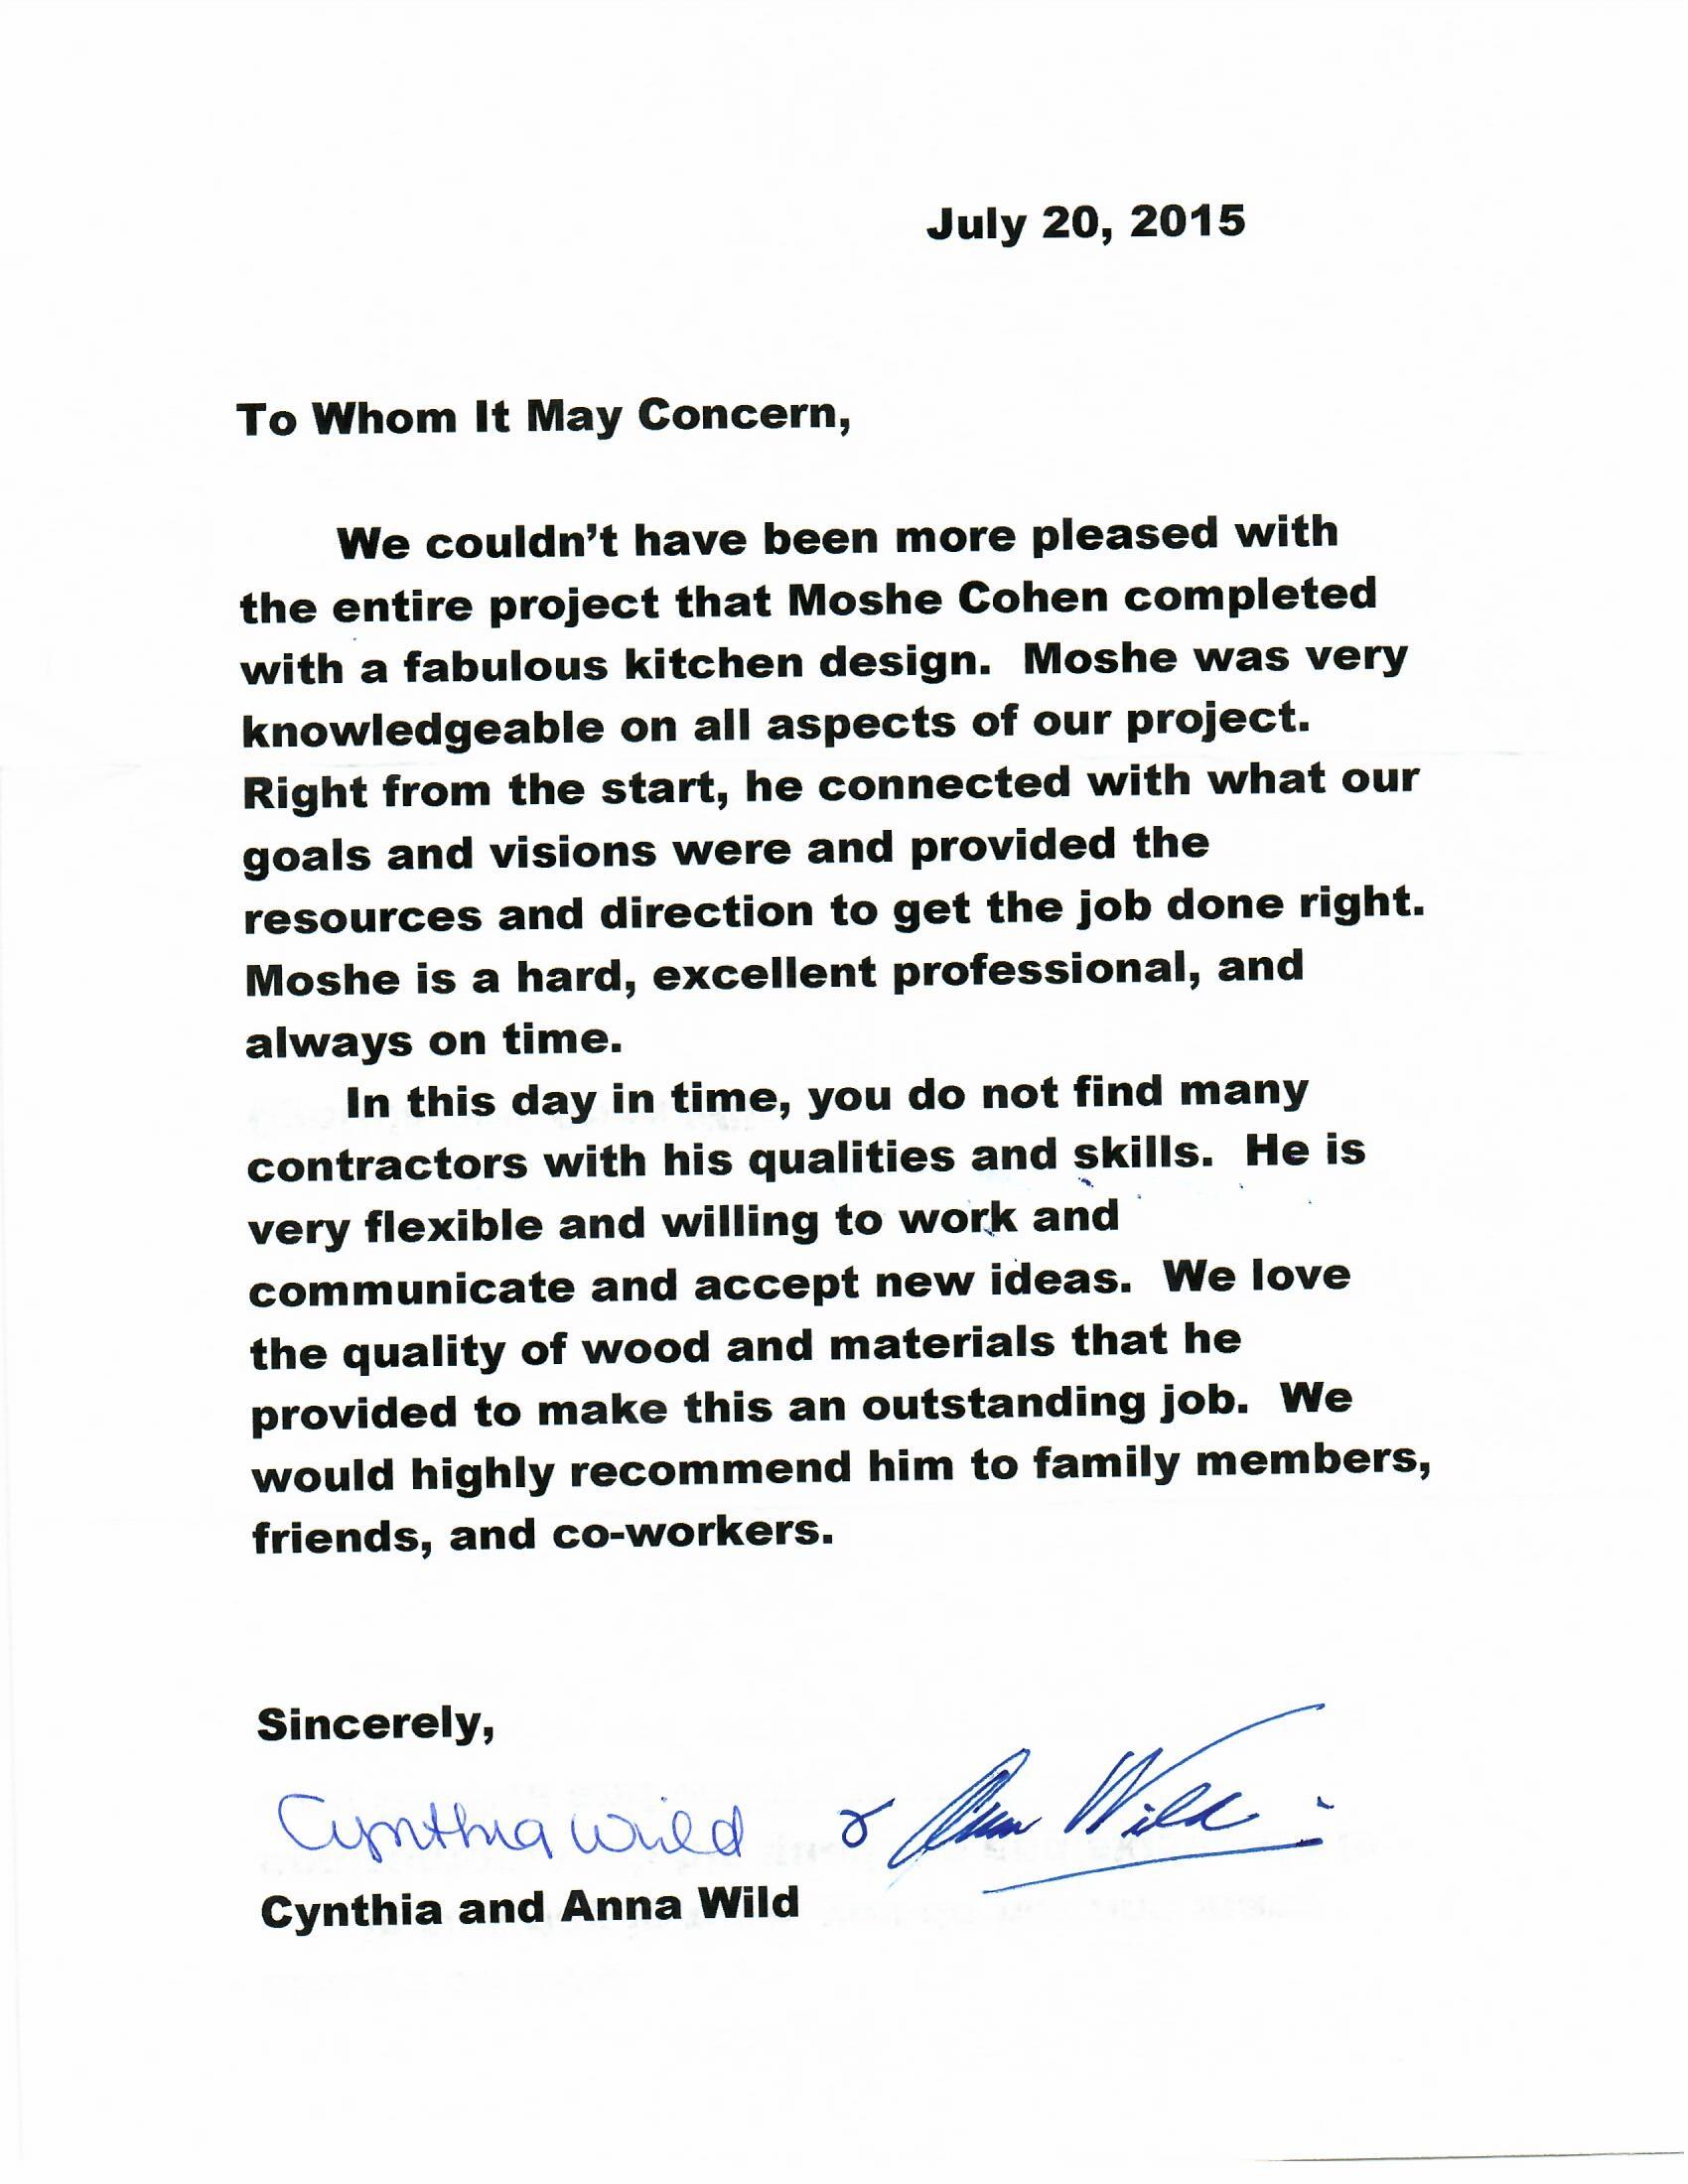 July 20, 2015
To Whom It May Concern,
We couldn't have been more pleased with
the entire project that Moshe Cohen completed
with a fabulous kitchen design.  Moshe was very
knowledgeable on all aspects of our project.
Right from the start, he connected with what our
goals and visions were and provided the
resources and direction to get the job done right.
Moshe is a hard, excellent professional, and
always on time.
In this day in time, you do not find many
contractors with his qualities and skills.  He is
very flexible and willing to work and
communicate and accept new ideas.  We love
the quality of wood and materials that he
provided to make this an outstanding job.  We
would highly recommend him to family members,
friends, and co-workers.
Sincerely,
Cynthia Wild & Anna Wild
Cynthia and Anna Wild